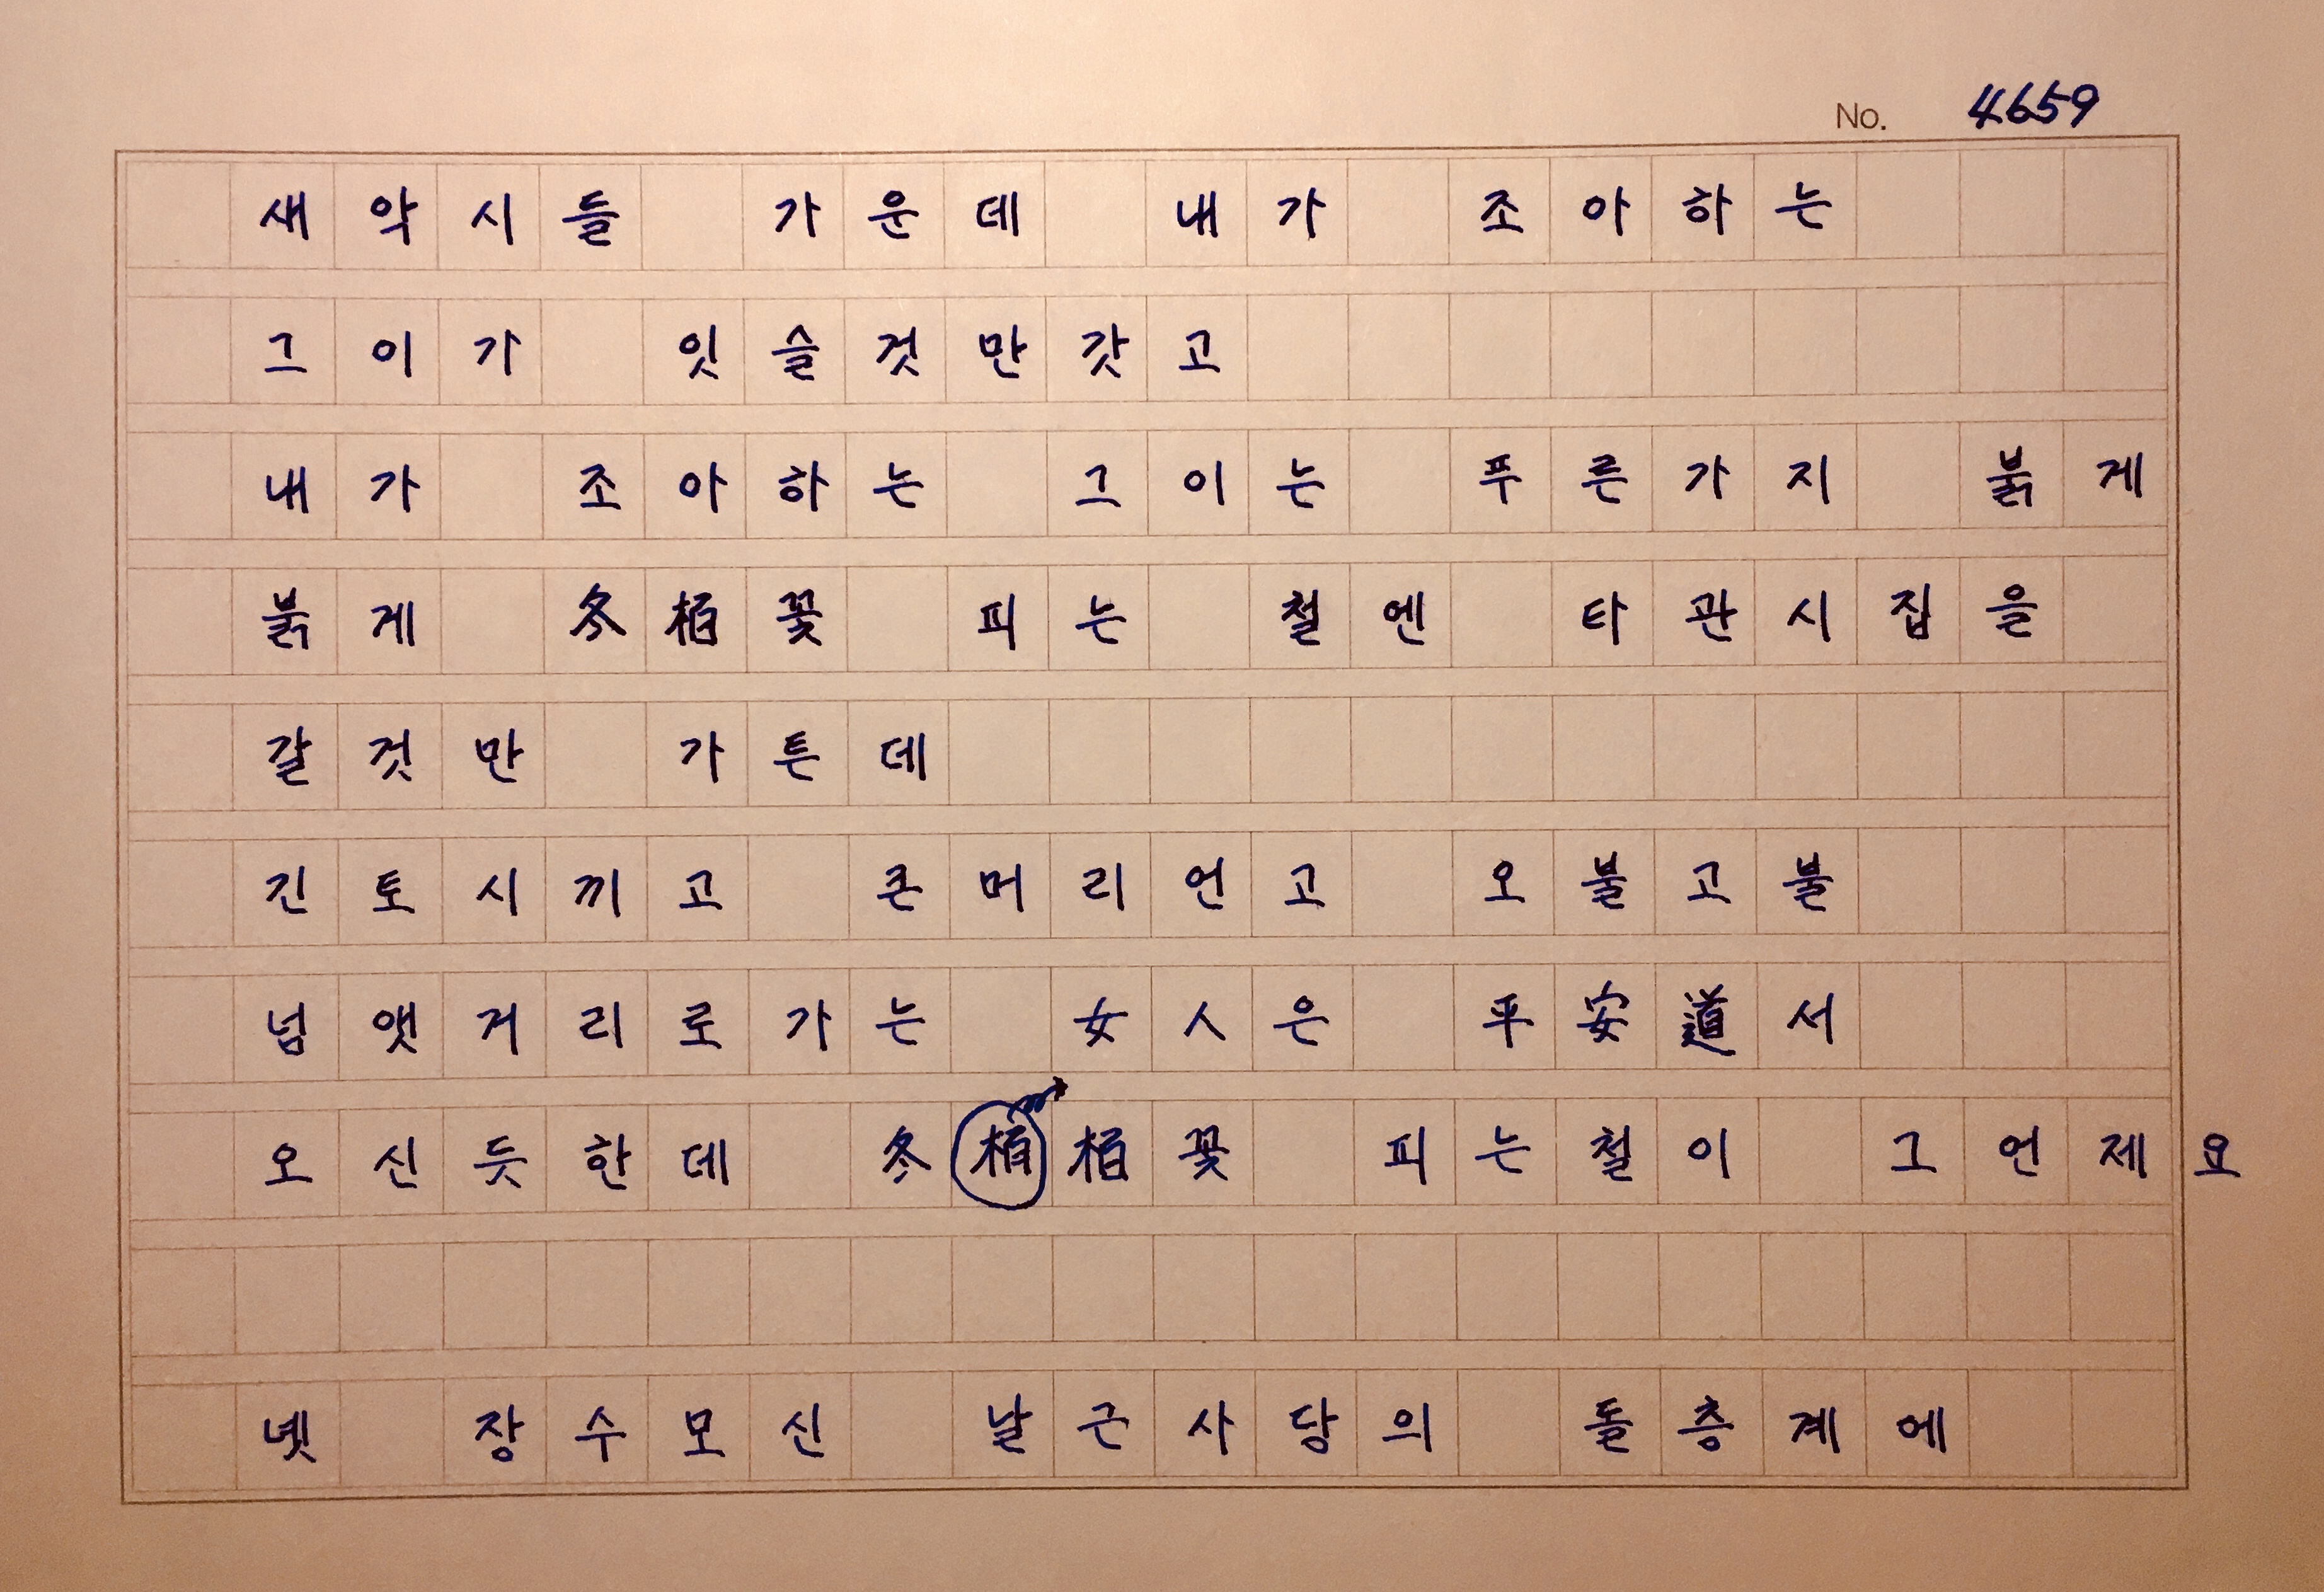 No. 4659
새악시들 가운데 내가 조아하는
그이가 잇슬것만갓고
내가 조아하는 그이는 푸른가지 붉게
붉게 冬柏꽃 피는 철엔 타관시집을
갈것만 가튼데
긴토시끼고 큰머리언고 오불고불
넘앳거리로가는 女人은 平安道서
오신듯한데 冬柏꽃 피는철이 그언제요
녯 장수모신 날근사당의 돌층계에